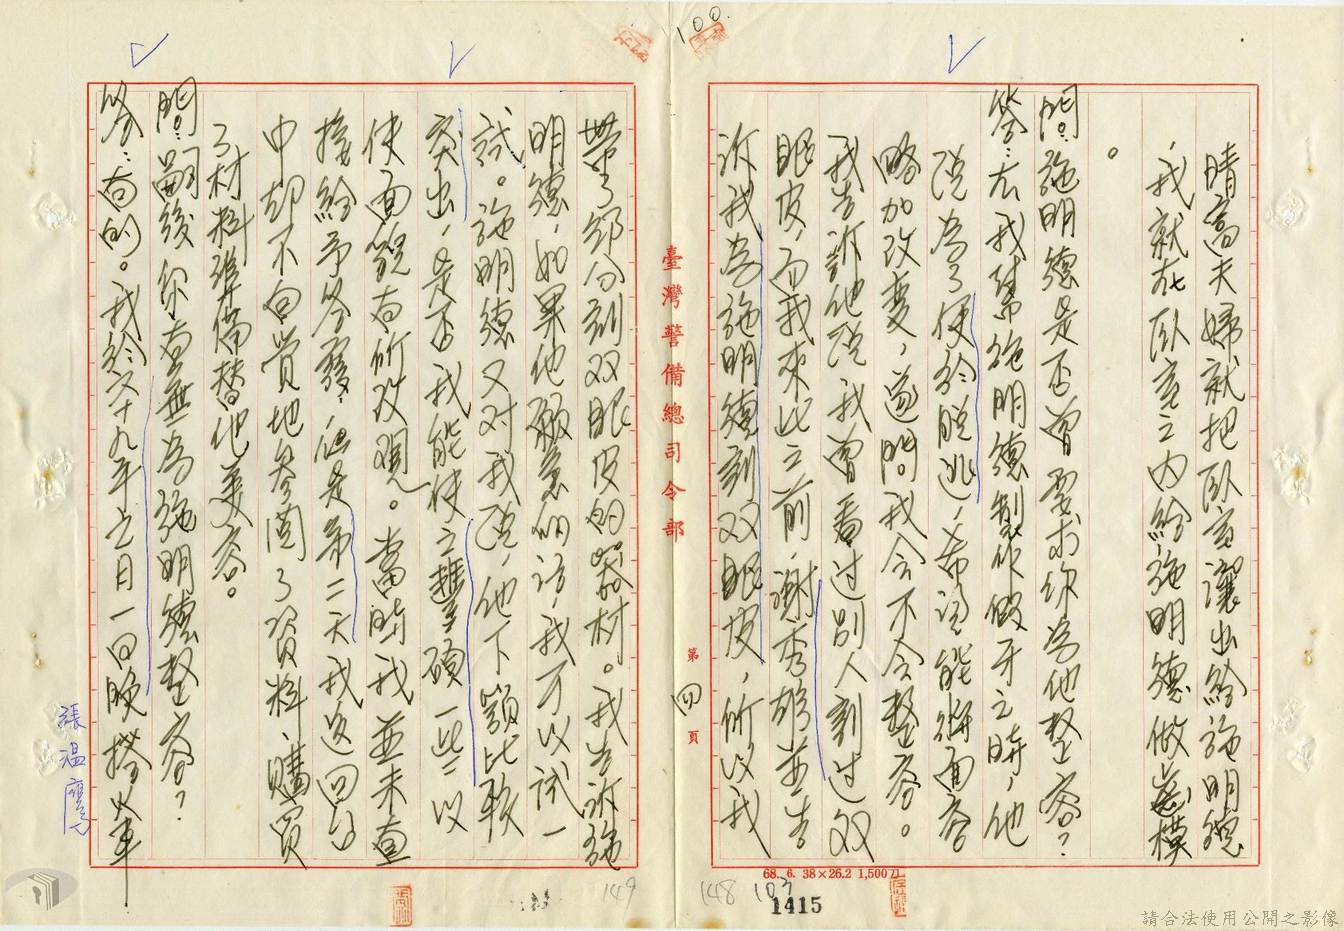 100.
晴高夫婦就把臥室讓出給施明德
，我就在臥室之內給施明德做齒模
。
問：施明德是否曾要求你為他整容？
答：在我幫施明德製作假牙之時，他
說為了便於脫逃，希望能將面容
略加改變，遂問我會不會整容。
我告訴他說我曾看過別人割過双
眼皮，而我來此之前，謝秀雄並告
訴我為施明德割双眼皮，所以我
臺灣警備總司令部
第四頁
帶了部份割双眼皮的器材。我告訴施
明德，如果他願意的話，我可以試一
試。施明德又对我說，他下顎比較
突出，是否我能使之豐碩一些以
使面貌有所改觀。當時我並未直
接給予答覆，但是第二天我返回台
中却不向賞地参閱了資料，購買
了材料準備替他美容。
問：嗣後你有無為施明德整容？
答：有的。我於六十九年元月一日晚搭火車
張溫鷹
68. 6. 38×26.2 1,500刀
149
148
103
1415
請合法使用公開之影像